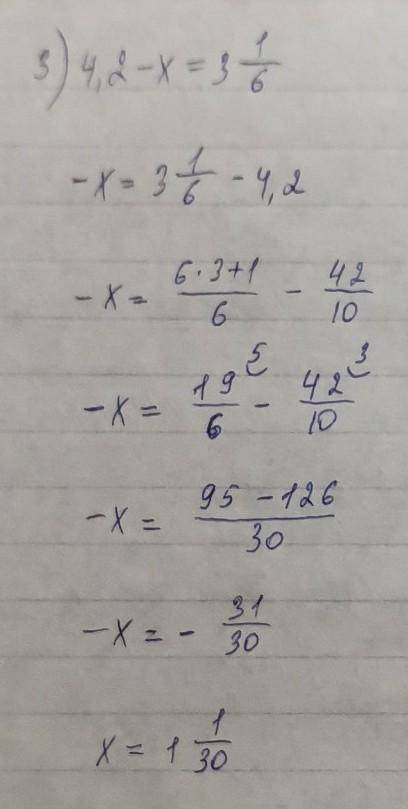 3) 4,2 - x = 3 1/6
-x = 3 1/6 - 4,2
-x = 6·3+1/6 - 42/10
-x = 19/6 ⁵ - 42/10 ³
-x = 95 - 126/30
-x = - 31/30
x = 1 1/30